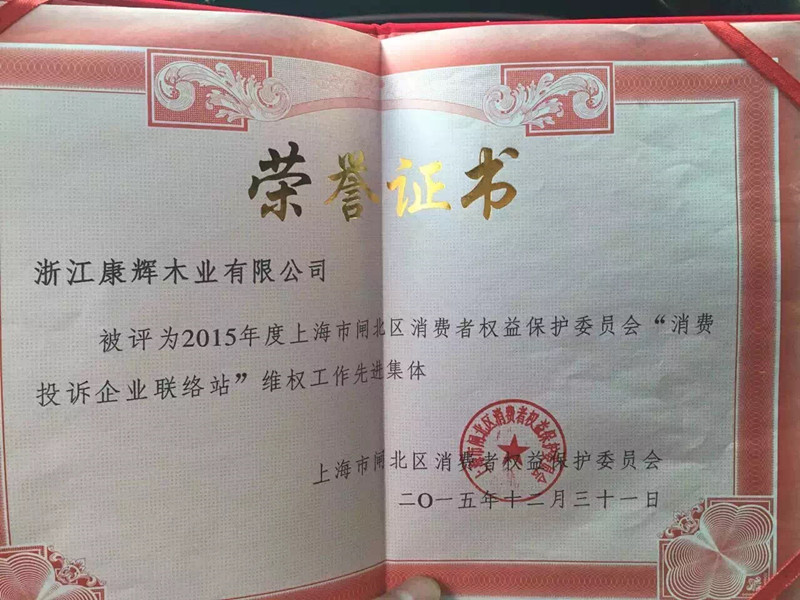 荣誉证书
浙江康辉木业有限公司
被评为2015年度上海市闸北区消费者权益保护委员会“消费
投诉企业联络站”维权工作先进集体
上海市闸北区消费者权益保护委员会
上海市闸北区消费者权益保护委员会
二〇一五年十二月三十一日